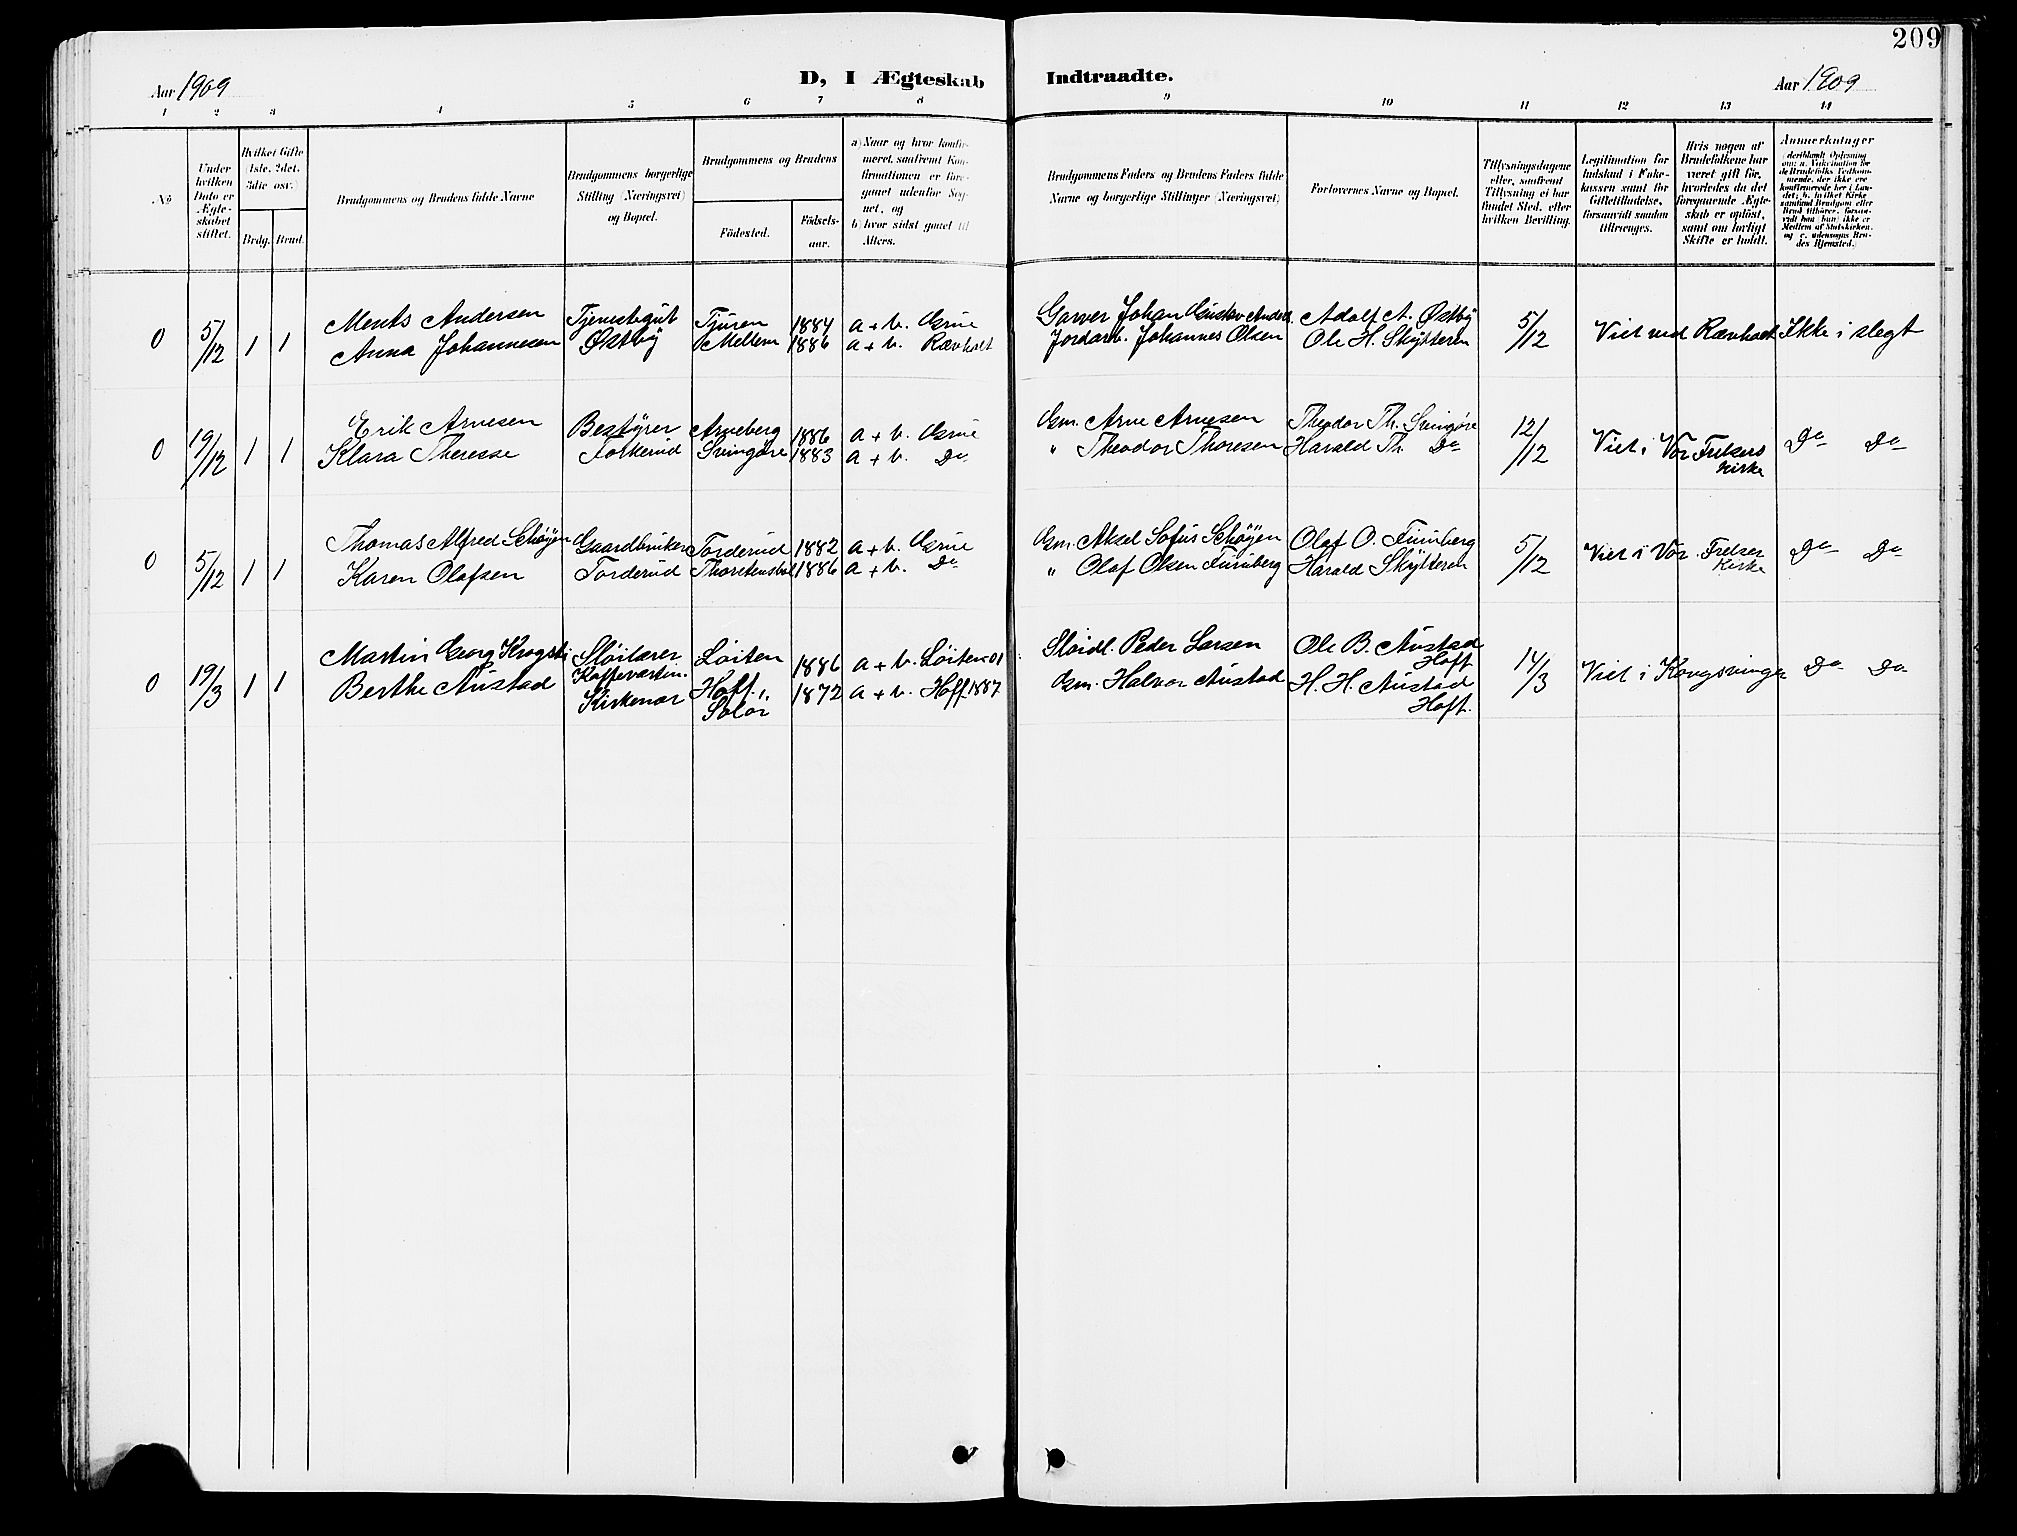 209
Aar 1909
D, I Ægteskab Indtraadte.
Aar 1909
1 2 3 4 5 6 7 8 9 10 11 12 13 14
No
Under hvilken Dato er Ægteskabet stiftet.
Hvilket Gifte (1ste, 2det, 3die osv.)
Brdg. Brud.
Brudgommens og Brudens fulde Navne
Brudgommens borgerlige Stilling (Næringsvei) og Bopæl.
Brudgommens og Brudens
Födested.
Födsels-aar.
a) Naar og hvor konfirmeret, saafremt Konfirmationen er foregaaet udenfor Sognet, og
b) hvor sidst gaaet til Alters.
Brudgommens Faders og Brudens Faders fulde Navne og borgerlige Stillinger (Næringsvei)
Forlovernes Navne og Bopæl.
Tillysningsdagene eller, saafremt Tillysning ei har fundet Sted, efter hvilken Bevilling.
Legitimation for Indskud i Enkekassen samt for Giftetilladelse, forsaavidt saadan tiltrænges.
Hvis nogen af Brudefolkene har været gift för, hvorledes da det foregaaende Ægteskab er oplöst, samt om lovligt Skifte er holdt.
Anmerkninger
0 5/12 1 1 Ments Andersen Tjenestegut Tjuren 1884 a + b. Grue Garver Johan Gustav Anders. Adolf A. Østby 5/12 Viet ved Rævholt Ikke i slegt
Anna Johannesen Østby Mellem 1886 a + b. Rævholt Jordarb. Johannes Olsen Ole H. Skytteren
0 19/12 1 1 Erik Arnesen Bestyrer Arneberg 1886 a + b. Grue Gm. Arne Arnesen Theodor Th. Svingøre 12/12 Viet i Vor Frelsers Kirke Do Do
Klara Theresse Torkerud Svingøre 1883 a + b. Do " Theodor Thoresen Harald Th. Do
0 5/12 1 1 Thomas Alfred Schøyen Gaardbruker Torderud 1882 a + b. Grue Gm. Aksel Sofus Schøyen Olaf O. Furuberg 5/12 Viet i Vor Frelser Kirke Do Do
Karen Olafsen Torderud 1886 a + b. Do " Olaf Olsen Furuberg Harald Skytteren
0 19/3 1 1 Martin Georg Krogsti Sløilærer Løiten 1886 a + b. Løiten 01 Sløidl. Peder Larsen Ole B. Austad Hoff 14/3 Viet i Kongsvinger Do Do
Berthe Austad Kaffevertin. Kirkenær Hoff i Solør 1872 a + b. Hoff. 1887 Gm. Halvor Austad H. H. Austad Hoff.